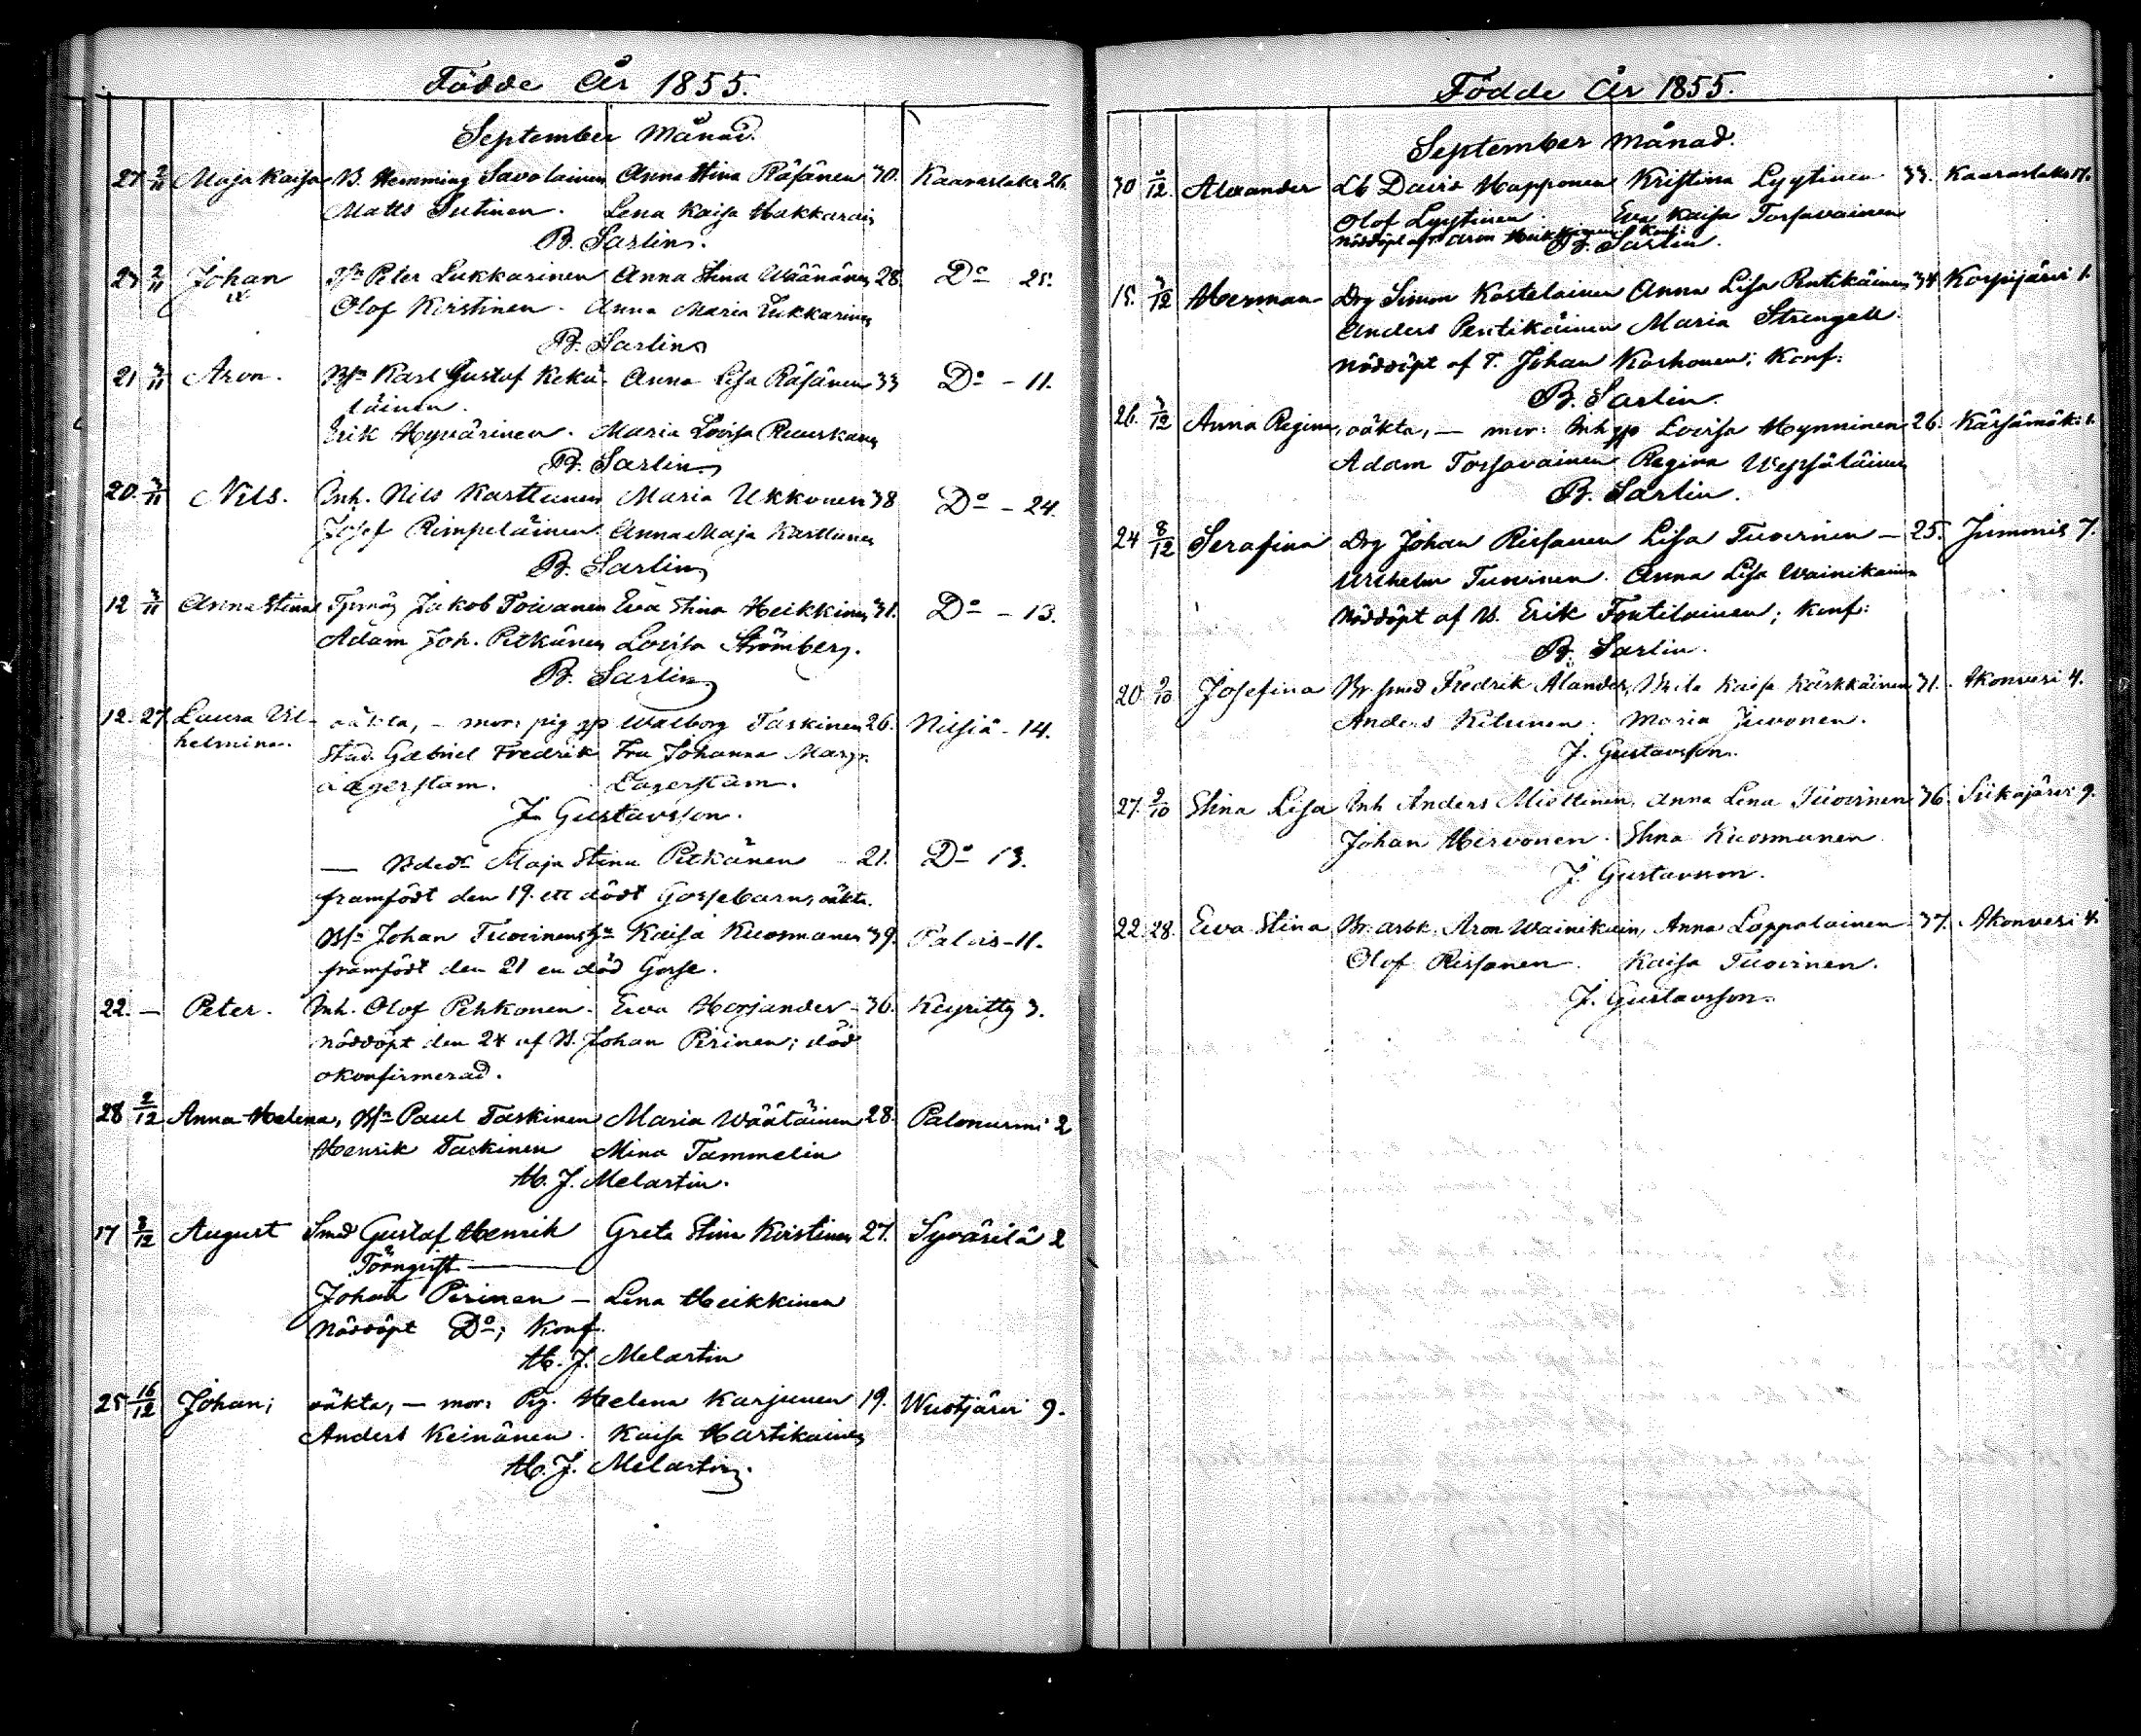 Födde År 1855.
September Månad.
27 2/11 Maja Kaisa B. Hemming Savolainen Anna Stina Räsänen 30. Kaaraslaks 26.
Matts Sutinen. Lena Kaisa Hakkarain
B. Sarlin.
23 2/11 Johan Peter Lukkarinen Anna Stina Wäänänen 28. Do 25.
Olof Kirstinen. Anna Maria Lukkarinen
B. Sarlin
21 3/11 Aron. Karl Gustaf Keku- Anna Lisa Räsänen 33 Do - 11.
läinen.
Erik Hyvärinen. Maria Lovisa Ruuskanen
B. Sarlin
20. 3/11 Nils. Inh. Nils Karttunen Maria Ukkonen 38 Do - 24.
Josef Rimpeläinen Anna Maja Karttunen
B. Sarlin
12 3/11 Anna Stina Jakob Toivanen Eva Stina Heikkinen 31. Do - 13.
Adam Joh. Pitkänen Lovisa Strömberg.
B. Sarlin
12. 27. Laura Vil- oäkta, - mor: pig Walborg Taskinen 26. Nilsiä - 14.
helmina. Stud. Gabriel Fredrik Fru Johanna Marg.
Lagerstam. Lagerstam.
J. Gustavsson.
— Maja Stina Pitkänen - 21. Do 13.
framfödt den 19. ett dödt Gossebarn, oäkta.
Johan Tuovinens Kaisa Kuosmanen 39. Palois - 11.
framfödt den 21 en död Gosse.
22. — Peter. Inh. Olof Pehkonen. Eva Harjander - 36. Keyritty 3.
nöddöpt den 24 af B. Johan Pirinen; död
okonfirmerad.
28 2/12 Anna Helena, Paul Taskinen Maria Wäätäinen 28. Palonurmi 2
Henrik Taskinen Mina Tammelin
H. J. Melartin.
17 3/12 August Smed Gustaf Henrik Greta Stina Kirstinen 27. Syvärilä 2
Törnqvist —
Johan Pirinen — Lena Heikkinen
Nöddöpt Do; konf.
H. J. Melartin
25 16/12 Johan; oäkta, — mor: Pig. Helena Karjunen 19. Wuotjärvi 9.
Anders Keinänen. Kaisa Hartikainen
H. J. Melartin.
Födde År 1855.
September Månad.
30 3/12. Alexander David Happonen Kristina Lyytinen 33. Kaaraslaks 17.
Olof Lyytinen. Eva Kaisa Torsavainen
Nöddöpt af Aron Heikkinen; konf:
B. Sarlin.
15. 7/12 Herman Drg Simon Kostelainen Anna Lisa Pentikäinen 34 Korpijärvi 1.
Anders Pentikäinen Maria Strengell
Nöddöpt af T. Johan Korhonen; Konf:
B. Sarlin.
26. 7/12 Anna Regina, oäkta, — mor: Inh Lovisa Hynninen 26. Kärsämäki 1.
Adam Torsavainen Regina Wepsäläinen
B. Sarlin.
24 8/12 Serafina Drg Johan Rissanen Lisa Tuovinen — 25. Jummis 7.
Wilhelm Tuovinen. Anna Lisa Wainikainen
Nöddöpt af B. Erik Fontilainen; Konf:
B. Sarlin.
20. 9/10 Josefina Br. smed Fredrik Alander, Brita Kaisa Kärkkäinen 31. Akonvesi 4.
Anders Kilunen. Maria Juvonen.
J. Gustavsson.
27. 9/10 Stina Lisa Inh Anders Miettinen, Anna Lena Tuovinen 36. Siikajärvi 9.
Johan Hirvonen. Stina Kuosmanen
J. Gustavsson.
22. 28. Eva Stina Br. arbk. Aron Wainikain, Anna Lappalainen 37. Akonvesi 4.
Olof Rissanen. Kaisa Tuovinen.
J. Gustavsson.